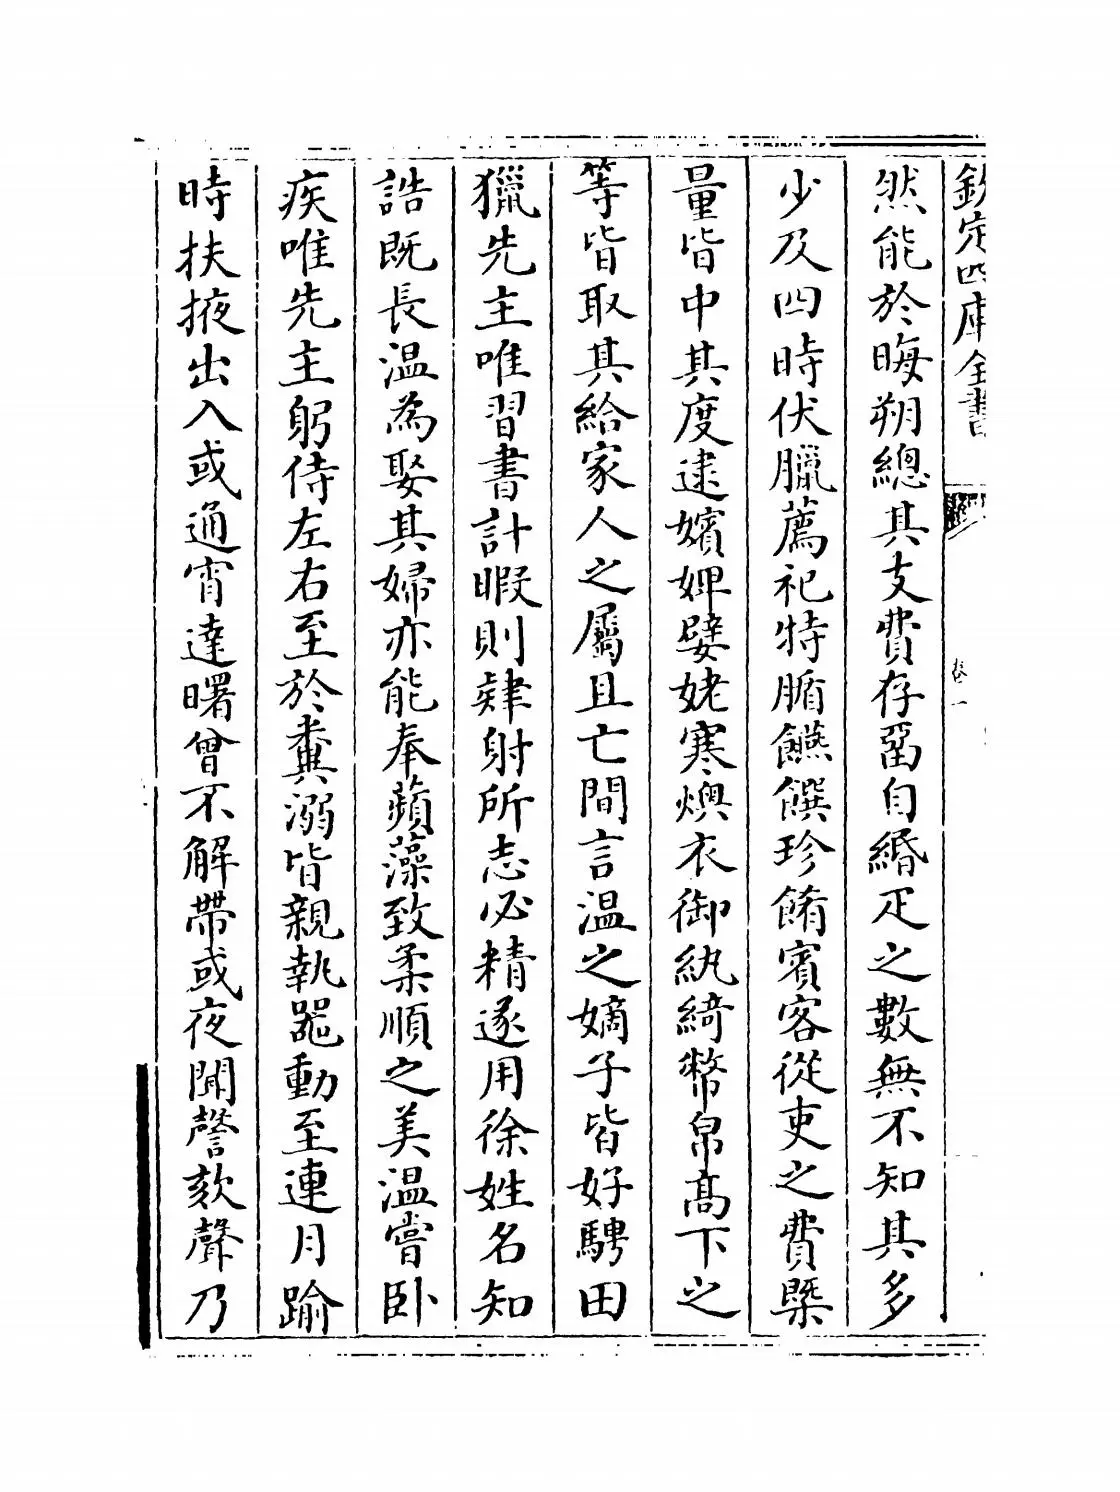 欽定四庫全書
卷一
然能於晦朔總其支費存畱自緡疋之數無不知其多
少及四時伏臘薦祀特腯饙饌珍餚賓客從吏之費槩
量皆中其度逮嬪婢嬖姥寒燠衣御紈綺幣帛髙下之
等皆取其給家人之屬且亡間言温之嫡子皆好騁田
獵先主唯習書計暇則肄射所志必精遂用徐姓名知
誥既長温為娶其婦亦能奉蘋藻致柔順之美温嘗卧
疾唯先主躬侍左右至於糞溺皆親執器動至連月踰
時扶掖出入或通宵達曙曾不解帶或夜聞謦欬聲乃